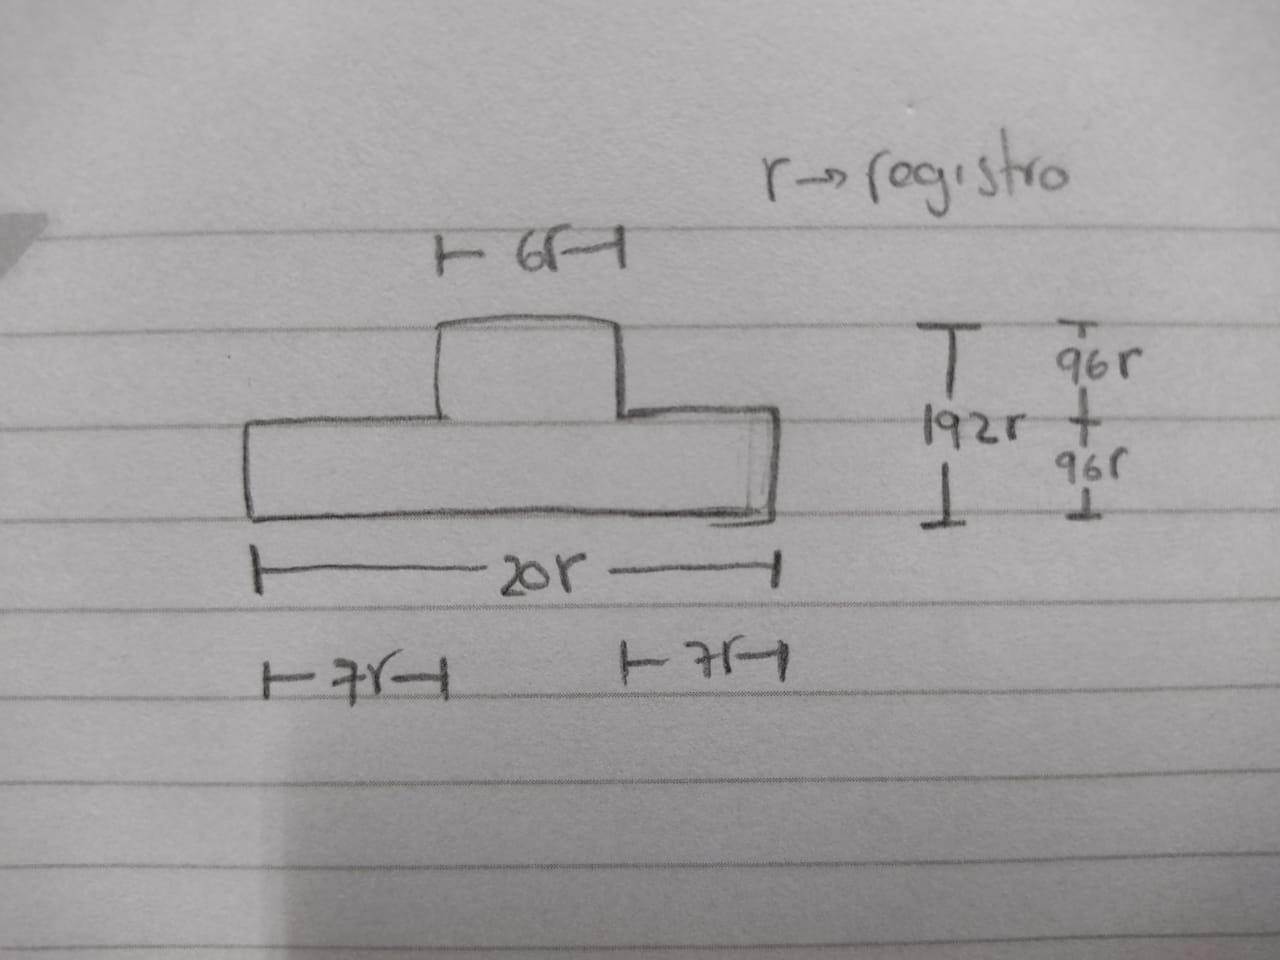 r→registro
6r
96r
192r
96r
20r
7r
7r